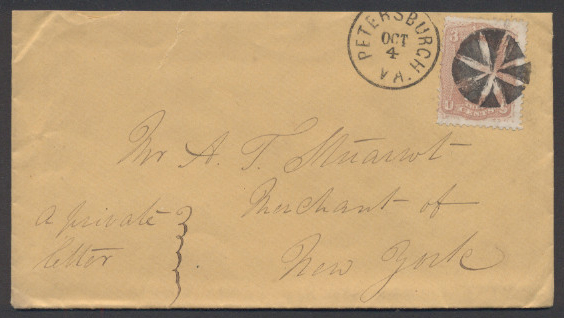 PETERSBURGH
OCT
4
VA.
3 3
CENTS
Mr A. T. Stuarot
Merchant of
New York
A private
letter